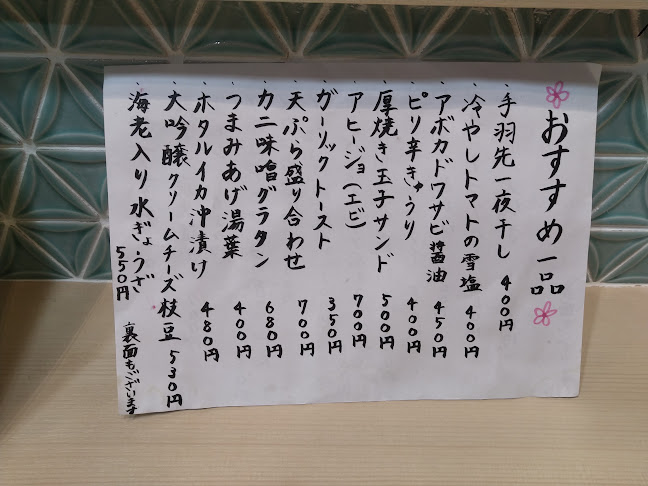 おすすめ一品
・手羽先一夜干し 400円
・冷やしトマトの雪塩 400円
・アボカドワサビ醤油 450円
・ピリ辛きゅうり 400円
・厚焼き玉子サンド 500円
・アヒージョ(エビ) 700円
・ガーリックトースト 350円
・天ぷら盛り合わせ 700円
・カニ味噌グラタン 680円
・つまみあげ湯葉 400円
・ホタルイカ沖漬け 480円
・大吟醸クリームチーズ枝豆 530円
・海老入り水ぎょうざ 550円
裏面もございます